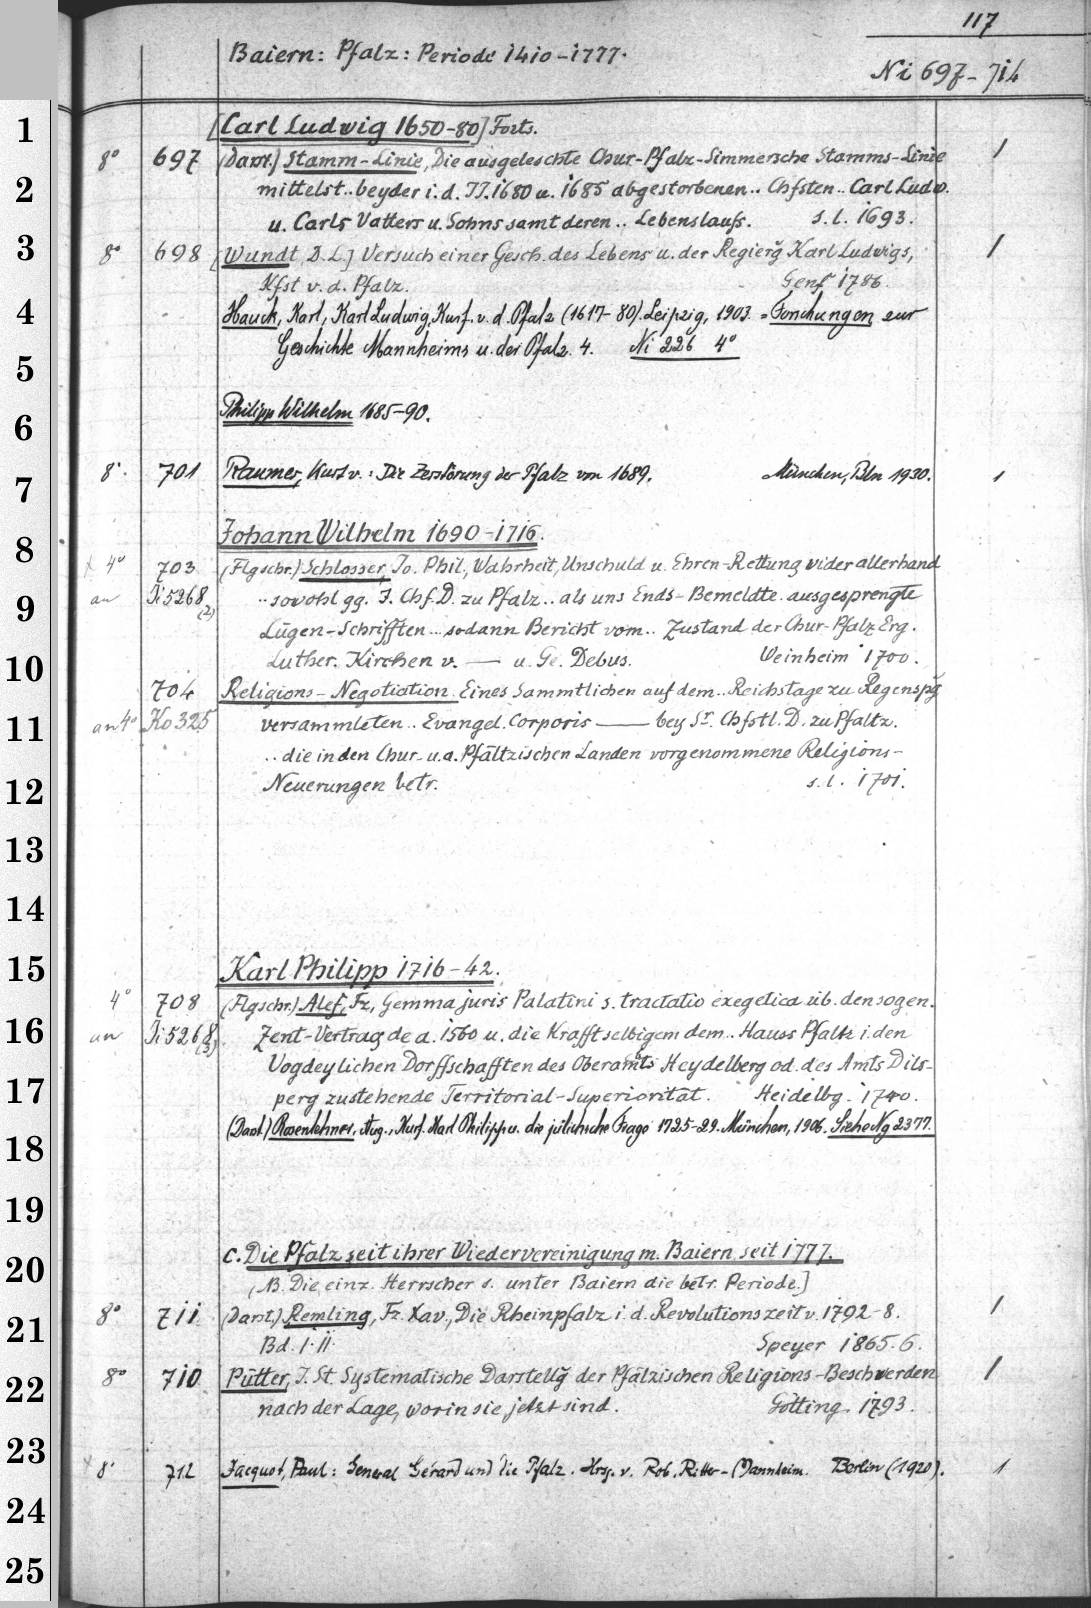 117
Baiern: Pfalz: Periode 1410-1777.
Ni 697-714
[Carl Ludwig 1650-80] Forts.
8° 697 (Darst.) Stamm-Linie, Die ausgeleschte Chur-Pfalz-Simmersche Stamms-Linie 1
mittelst..beyder i.d. JJ.1680 u. 1685 abgestorbenen.. Chfsten.. Carl Ludw.
u. Carls Vatters u. Sohns samt deren.. Lebenslauff. s.l. 1693.
8° 698 [Wundt, D.L.] Versuch einer Gesch. des Lebens u. der Regierg̃ Karl Ludwigs, 1
Kfst v. d. Pfalz. Genf 1786.
Hauck, Karl, Karl Ludwig, Kurf. v. d. Pfalz (1617-80). Leipzig, 1903. = Forschungen zur
Geschichte Mannheims u. der Pfalz. 4. Ni 226 4°
Philipp Wilhelm 1685-90.
8°. 701 Raumer, Kurt v.: Die Zerstörung der Pfalz von 1689. München, Bln 1930. 1
Johann Wilhelm 1690-1716.
4° 703 (Flgschr.) Schlosser, Jo. Phil, Wahrheit, Unschuld u. Ehren-Rettung wider allerhand
an Ji 5268 (2) ..sowohl gg. J. Chf. D. zu Pfalz.. als uns Ends-Bemeldte ausgesprengte
Lügen-Schrifften... sodann Bericht vom.. Zustand der Chur-Pfalz Erg.
Luther. Kirchen v. — u. Ge. Debus. Weinheim 1700.
704 Religions-Negotiation Eines Sammtlichen auf dem.. Reichstage zu Regenspg̃
an 4° Ko 325 versammleten.. Evangel. Corporis — bey Sr. Chfstl. D. zu Pfaltz.
..die in den Chur- u.a. Pfältzischen Landen vorgenommene Religions-
Neuerungen betr. s.l. 1701.
Karl Philipp 1716-42.
4° 708 (Flgschr.) Alef, Fr., Gemma juris Palatini s. tractatio exegetica üb. den sogen.
an Ji 5268 (3) Zent-Vertrag de a. 1560 u. die Krafft selbigem dem.. Hauss Pfaltz i. den
Vogdeylichen Dorffschafften des Oberamts Heydelberg od. des Amts Dils-
perg zustehende Territorial-Superiorität. Heidelbg. 1740.
(Darst.) Rosenlehner, Aug., Kurf. Karl Philipp u. die jülichsche Frage 1725-29. München, 1906. Siehe Ng 2377.
c. Die Pfalz seit ihrer Wiedervereinigung m. Baiern seit 1777.
[NB. Die einz. Herrscher s. unter Baiern die betr. Periode.]
8° 711 (Darst.) Remling, Fr. Xav., Die Rheinpfalz i. d. Revolutionszeit v. 1792-8. 1
Bd. I. II. Speyer 1865.6.
8° 710 Pütter, J. St. Systematische Darstellg̃ der Pfälzischen Religions-Beschwerden 1
nach der Lage, worin sie jetzt sind. Götting. 1793.
8° 712 Jacquot, Paul: General Gérard und die Pfalz. Hrsg. v. Rob. Ritter-Mannheim. Berlin (1920). 1
1
2
3
4
5
6
7
8
9
10
11
12
13
14
15
16
17
18
19
20
21
22
23
24
25